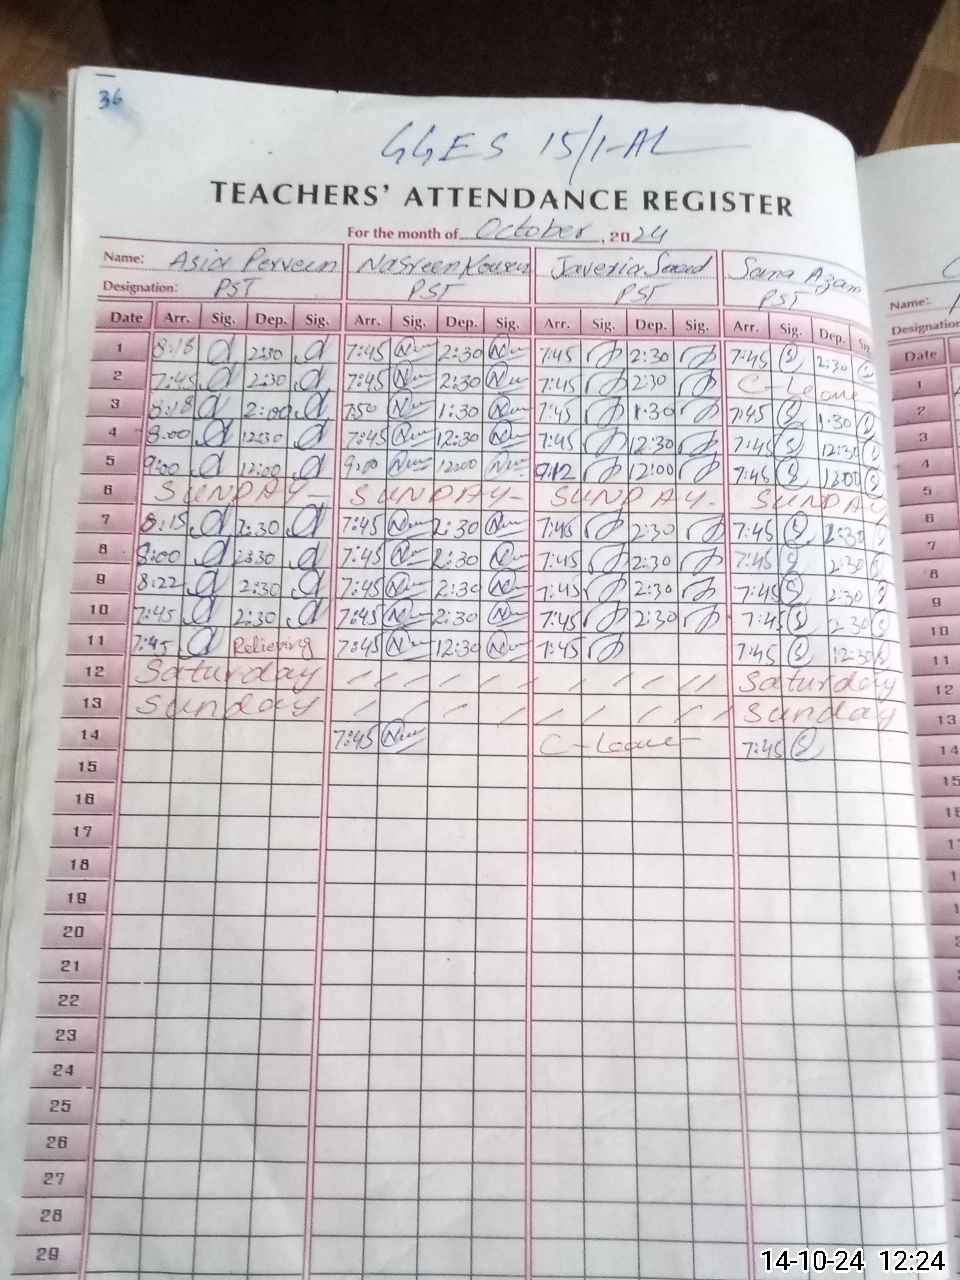 36
GGES 15/1-AL
TEACHERS' ATTENDANCE REGISTER
For the month of October, 2024
Name: Asia Perveen Nasreen Kousar Javeria Saeed Sana Azam
Designation: PST PST PST PST
Date Arr. Sig. Dep. Sig. Arr. Sig. Dep. Sig. Arr. Sig. Dep. Sig. Arr. Sig. Dep. Sig.
1 8:18 2:30 7:45 2:30 7:45 2:30 7:45 2:30
2 7:45 2:30 7:45 2:30 7:45 2:30 C-Leave
3 8:18 2:00 7:50 1:30 7:45 1:30 7:45 1:30
4 8:00 12:30 7:45 12:30 7:45 12:30 7:45 12:30
5 9:00 12:00 9:00 12:00 9:12 12:00 7:45 12:00
6 SUNDAY- SUNDAY- SUNDAY- SUNDAY
7 8:15 2:30 7:45 2:30 7:45 2:30 7:45 2:30
8 8:00 2:30 7:45 2:30 7:45 2:30 7:45 2:30
9 8:22 2:30 7:45 2:30 7:45 2:30 7:45 2:30
10 7:45 2:30 7:45 2:30 7:45 2:30 7:45 2:30
11 7:45 Relieving 7:45 12:30 7:45 7:45 12:30
12 Saturday Saturday
13 Sunday Sunday
14 7:45 C-Leave 7:45
15
16
17
18
19
20
21
22
23
24
25
26
27
28
29
Name:
Designation
Date
1
2
3
4
5
6
7
8
9
10
11
12
13
14
15
14-10-24 12:24